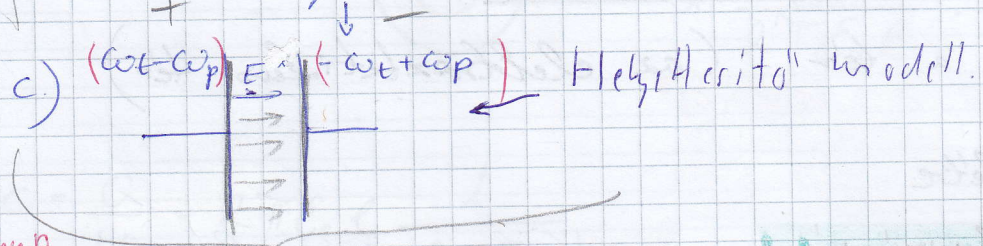 + -
c.) (ωt-ωp) E (-ωt+ωp) Helyettesítő modell.